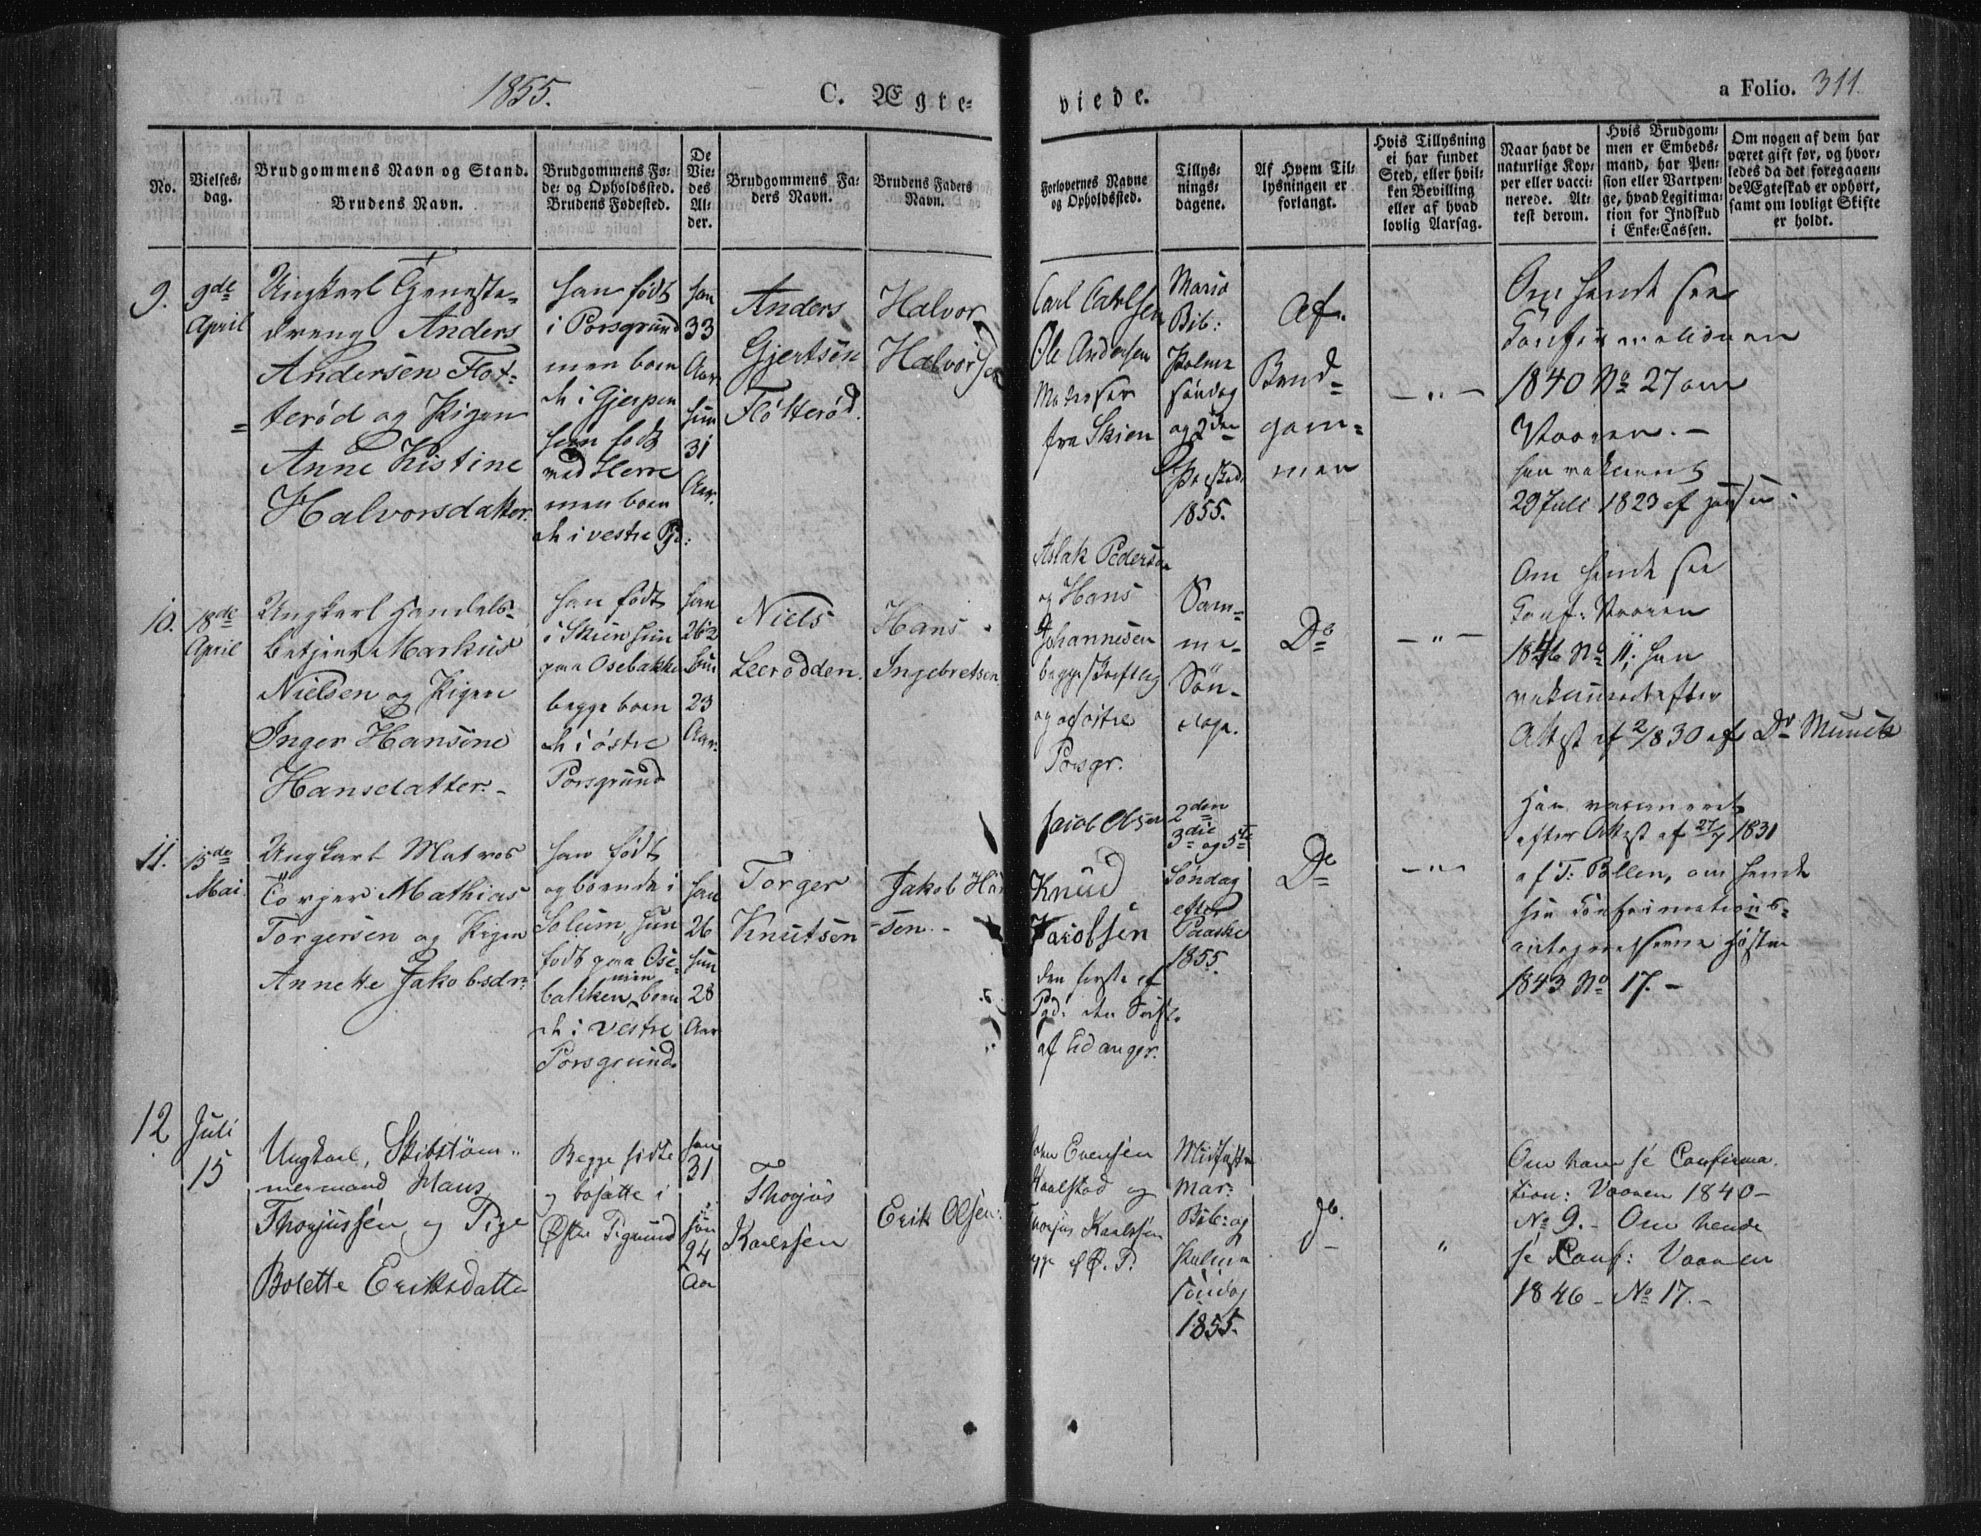 1855.
C. Ægte-
viede.
a Folio. 311.
No.
Vielses-
dag.
Brudgommens Navn og Stand.
Brudens Navn.
Brudgommens Fø-
de- og Opholdssted.
Brudens Fødested.
De
Vie-
des
Al-
der.
Brudgommens Fa-
ders Navn.
Brudens Faders
Navn.
Forlovernes Navne
og Opholdssted.
Tillys-
nings-
dagene.
Af Hvem Til-
lysningen er
forlangt.
Hvis Tillysning
ei har fundet
Sted, eller hvil-
ken Bevilling
eller af hvad
lovlig Aarsag.
Naar havt de
naturlige Kop-
per eller vacci-
nerede. At-
test derom.
Hvis Brudgom-
men er Embeds-
mand, har Pen-
sion eller Vartpen-
ge, hvad Legitima-
tion for Indskud
i Enke-Cassen.
Om nogen af dem har
været gift før, og hvor-
ledes da det foregaaen-
de Ægteskab er ophørt,
samt om lovligt Skifte
er holdt.
9.
9de
April
Ungkarl Tjeneste-
dreng Anders
Andersen Fløt-
terød og Pigen
Anne Kistine
Halvorsdatter.
han født
i Porsgrund
men boen
de i Gjerpen
hun født
ved Herre
men boen
de i vestre Pgd:
han
33
Aar
hun
31
Aar.
Anders
Gjertsen
Fløtterød.
Halvor
Halvorsen
Carl Carlsen
Ole Andersen
Matroser
fra Skien
Maria
Bib:
Palme
søndag
og 2den
Paasked.
1855.
Af
Brud-
gom-
men
— „ —
Om hende see
Confirmationen
1840 No 27 om
Vaaren. —
han vakcineret
29 Juli 1823 af
10.
18de
April
Ungkarl Handels-
betjent Markus
Nielsen og Pigen
Inger Hansine
Hansdatter. -
han født
i Skien hun
paa Osebakke
begge boen
de i østre
Porsgrund
han
26½
hun
23
Aar.
Niels
Leerødden.
Hans
Ingebretsen
Aslak Pederse
og Hans
Johannesen
begge Skriftlig
og af østre
Porsgr.
Sam-
me
Søn-
dage.
Do
— „ —
Om hende see
Conf: Vaaren
1846 No 11; han
vakcineret efter
Attest af 2/7 830 af Dr Munck
11.
15de
Mai.
Ungkarl Matros
Torjer Mathias
Torgersen og Pigen
Annette Jakobsdr:
han født
og boende i
Solum, hun
født paa Ose-
bakken, men boen
de i vestre
Porsgrund.
han
26
hun
28
Aar
Torger
Knutsen
Jakob Han
-sen. -
Jacob Olsen
Knud
Jacobsen
den første af
Pgd: den Sidste
af Eidanger.
2den
3die og 5te
Søndag
efter
Paaske
1855.
Do
— „ —
Han vaccineret
efter Attest af 27/7 1831
af T: Bollen, om hende
see Confirmations-
antegnelserne Høsten
1843 No 17. -
12
Juli
15
Ungkarl, Skibstøm-
mermand Hans
Thorjussen og Pige
Bolette Eriksdatte
Begge fødte
og bosatte i
Østre Pgrund
han
31
hun
24
Aar
Thorjus
Karlsen
Erik Olsen.
John Evensen
og
Thorjus Karlsen
begge af Ø. P.
Midfaste
Mar:
Bib: og
Palme
søndag
1855.
do.
„
Om ham sé Confirma-
tion: Vaaren 1840 -
No 9. - Om hende
sé Conf: Vaaren
1846 - No 17. -